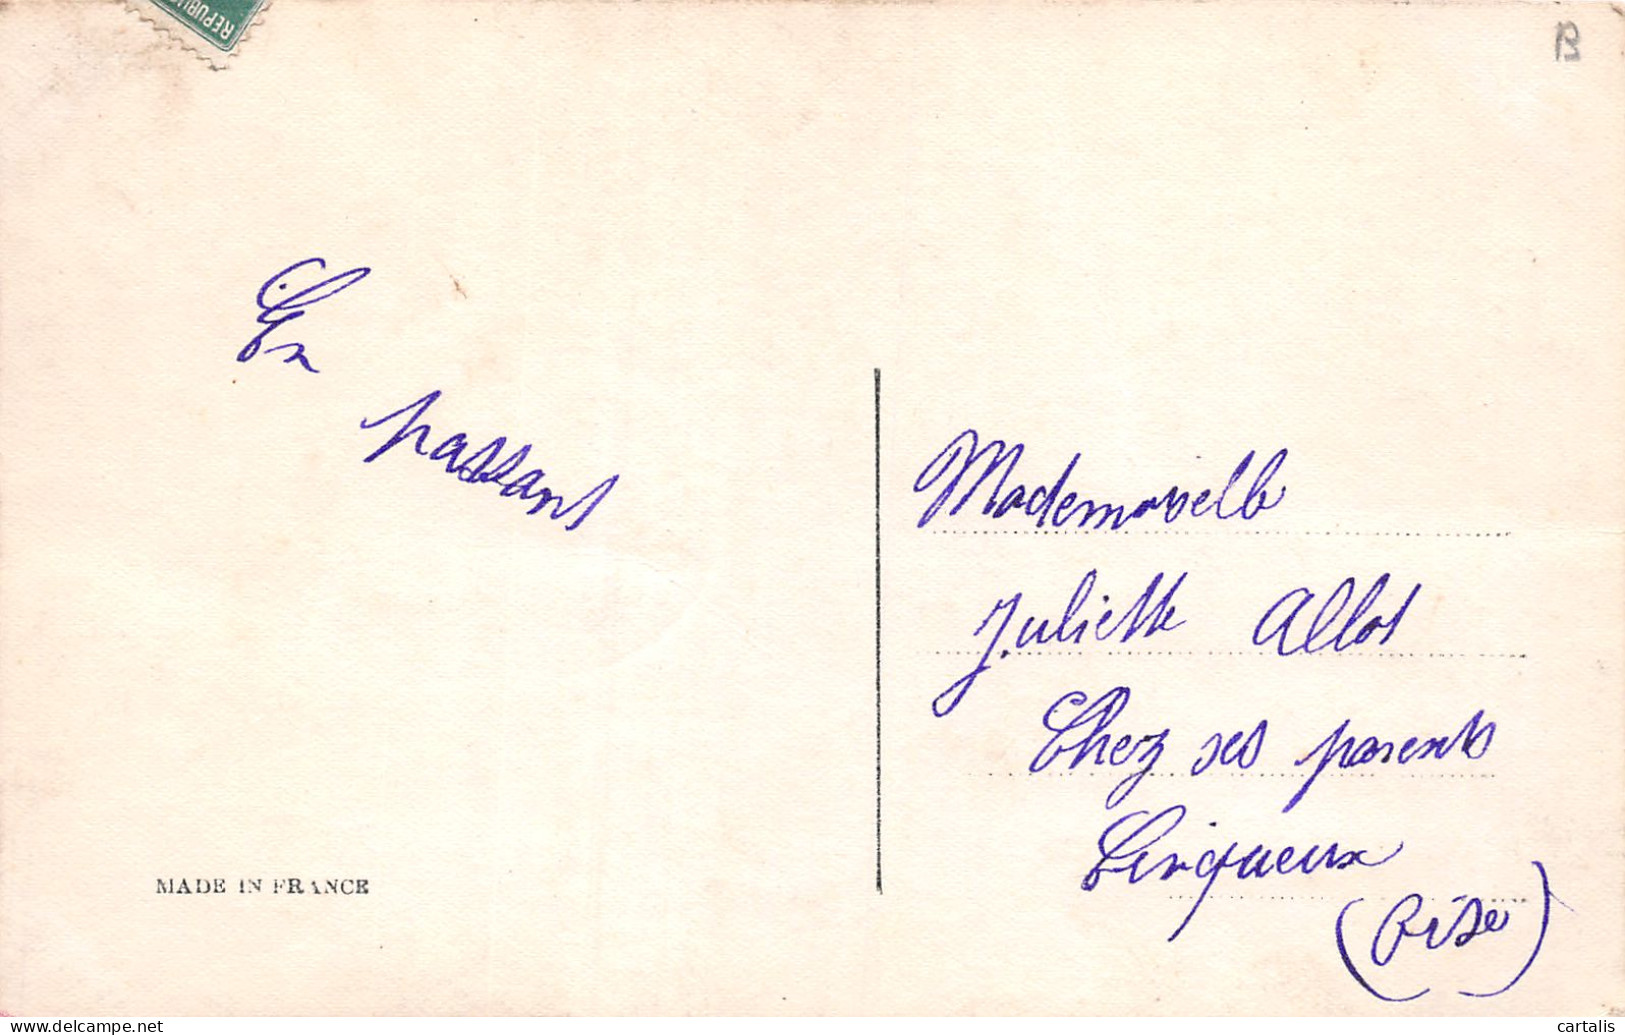 REPUBLI
B
En
passant
Mademoiselle
Juliette Allot
Chez ses parents
Cinqueux
(Oise)
MADE IN FRANCE
www.delcampe.net
cartalis